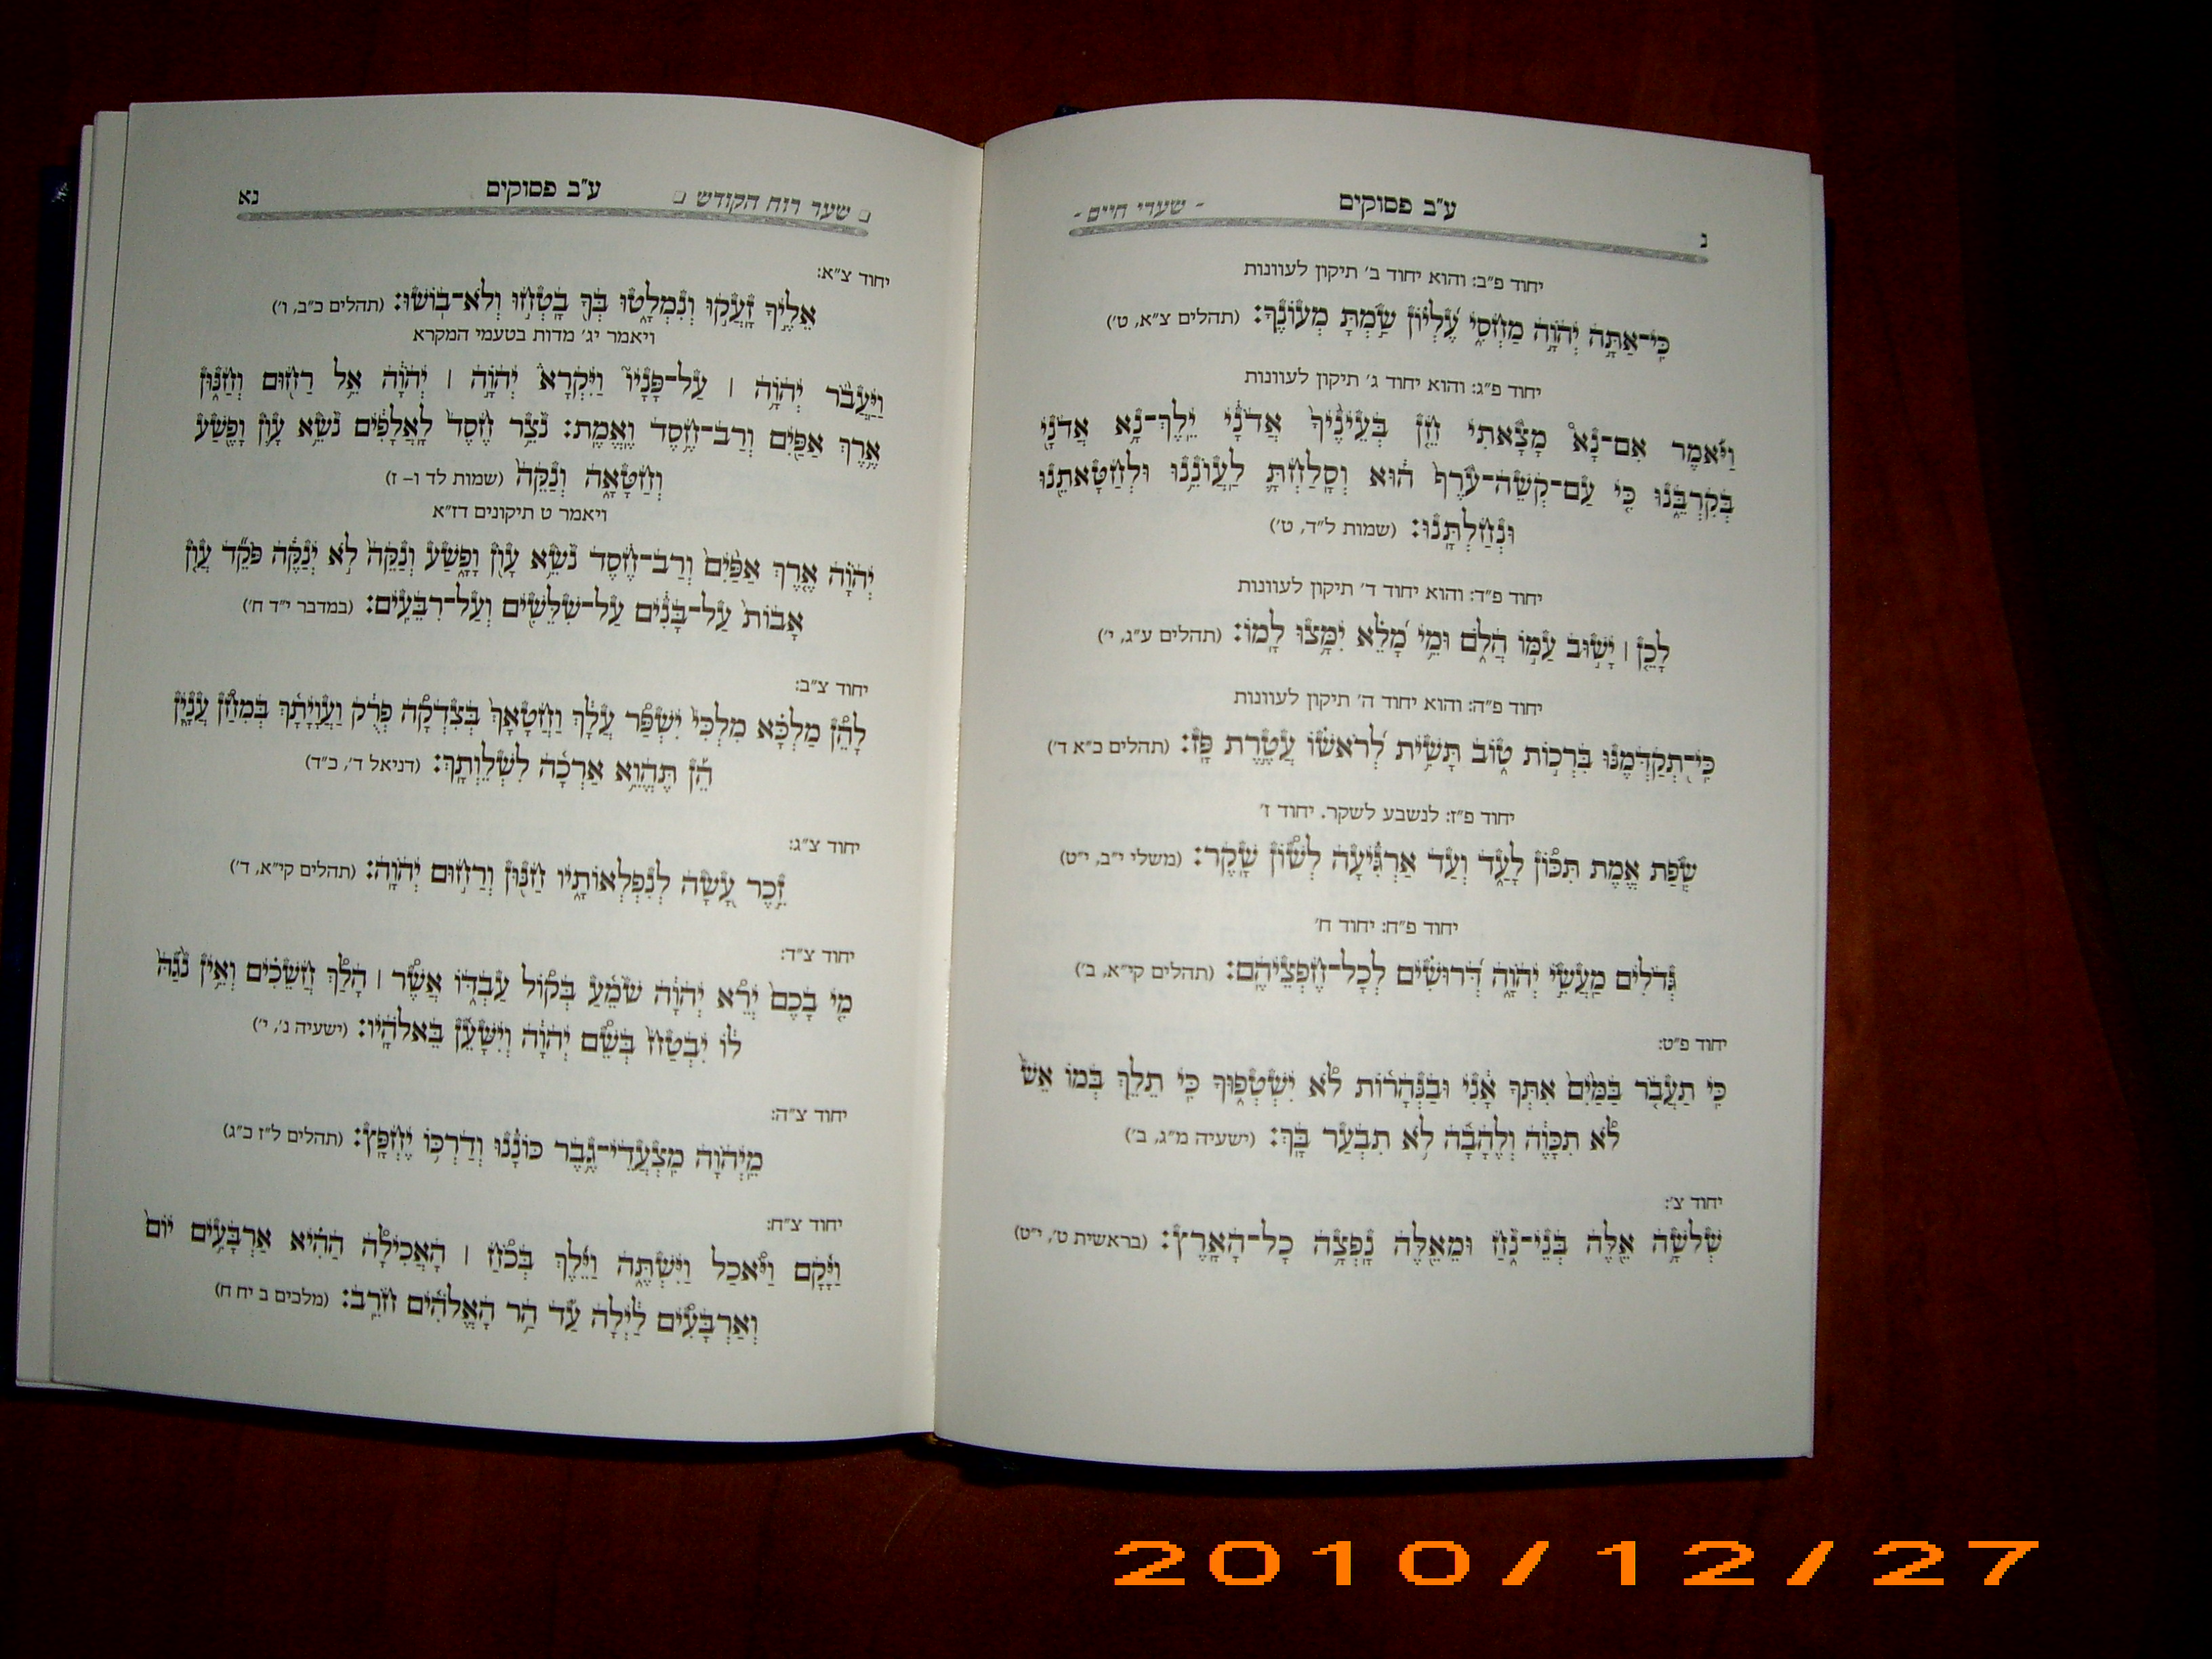 ע"ב פסוקים - שערי חיים -
נ
יחוד פ"ב: והוא יחוד ב' תיקון לעוונות
כִּי־אַתָּה יְהֹוָה מַחְסִי עֶלְיוֹן שַׂמְתָּ מְעוֹנֶךָ: (תהלים צ"א, ט')
יחוד פ"ג: והוא יחוד ג' תיקון לעוונות
וַיֹּאמֶר אִם־נָא מָצָאתִי חֵן בְּעֵינֶיךָ אֲדֹנָי יֵלֶךְ־נָא אֲדֹנָי
בְּקִרְבֵּנוּ כִּי עַם־קְשֵׁה־עֹרֶף הוּא וְסָלַחְתָּ לַעֲוֹנֵנוּ וּלְחַטָּאתֵנוּ
וּנְחַלְתָּנוּ: (שמות ל"ד, ט')
יחוד פ"ד: והוא יחוד ד' תיקון לעוונות
לָכֵן | יָשׁוּב עַמּוֹ הֲלֹם וּמֵי מָלֵא יִמָּצוּ לָמוֹ: (תהלים ע"ג, י')
יחוד פ"ה: והוא יחוד ה' תיקון לעוונות
כִּי־תְקַדְּמֶנּוּ בִּרְכוֹת טוֹב תָּשִׁית לְרֹאשׁוֹ עֲטֶרֶת פָּז: (תהלים כ"א ד')
יחוד פ"ז: לנשבע לשקר. יחוד ז'
שְׂפַת אֱמֶת תִּכּוֹן לָעַד וְעַד אַרְגִּיעָה לְשׁוֹן שָׁקֶר: (משלי י"ב, י"ט)
יחוד פ"ח: יחוד ח'
גְּדֹלִים מַעֲשֵׂי יְהֹוָה דְּרוּשִׁים לְכָל־חֶפְצֵיהֶם: (תהלים קי"א, ב')
יחוד פ"ט:
כִּי תַעֲבֹר בַּמַּיִם אִתְּךָ אָנִי וּבַנְּהָרוֹת לֹא יִשְׁטְפוּךָ כִּי תֵלֵךְ בְּמוֹ אֵשׁ
לֹא תִכָּוֶה וְלֶהָבָה לֹא תִבְעַר בָּךְ: (ישעיה מ"ג, ב')
יחוד צ':
שְׁלֹשָׁה אֵלֶּה בְּנֵי־נֹחַ וּמֵאֵלֶּה נָפְצָה כָל־הָאָרֶץ: (בראשית ט', י"ט)
שער רוח הקודש ע"ב פסוקים נא
יחוד צ"א:
אֵלֶיךָ זָעֲקוּ וְנִמְלָטוּ בְּךָ בָטְחוּ וְלֹא־בוֹשׁוּ: (תהלים כ"ב, ו')
ויאמר יג' מדות בטעמי המקרא
וַיַּעֲבֹר יְהֹוָה | עַל־פָּנָיו וַיִּקְרָא יְהֹוָה | יְהֹוָה אֵל רַחוּם וְחַנּוּן
אֶרֶךְ אַפַּיִם וְרַב־חֶסֶד וֶאֱמֶת: נֹצֵר חֶסֶד לָאֲלָפִים נֹשֵׂא עָוֹן וָפֶשַׁע
וְחַטָּאָה וְנַקֵּה (שמות לד ו- ז)
ויאמר ט תיקונים דז"א
יְהֹוָה אֶרֶךְ אַפַּיִם וְרַב־חֶסֶד נֹשֵׂא עָוֹן וָפֶשַׁע וְנַקֵּה לֹא יְנַקֶּה פֹּקֵד עֲוֹן
אָבוֹת עַל־בָּנִים עַל־שִׁלֵּשִׁים וְעַל־רִבֵּעִים: (במדבר י"ד ח')
יחוד צ"ב:
לָהֵן מַלְכָּא מִלְכִּי יִשְׁפַּר עֲלָךְ וַחֲטָאָךְ בְּצִדְקָה פְרֻק וַעֲוָיָתָךְ בְּמִחַן עֲנָיִן
הֵן תֶּהֱוֵא אַרְכָה לִשְׁלֵוְתָךְ: (דניאל ד', כ"ד)
יחוד צ"ג:
זֵכֶר עָשָׂה לְנִפְלְאוֹתָיו חַנּוּן וְרַחוּם יְהֹוָה: (תהלים קי"א, ד')
יחוד צ"ד:
מִי בָכֶם יְרֵא יְהֹוָה שֹׁמֵעַ בְּקוֹל עַבְדּוֹ אֲשֶׁר | הָלַךְ חֲשֵׁכִים וְאֵין נֹגַהּ
לוֹ יִבְטַח בְּשֵׁם יְהֹוָה וְיִשָּׁעֵן בֵּאלֹהָיו: (ישעיה נ', י')
יחוד צ"ה:
מֵיְהֹוָה מִצְעֲדֵי־גֶבֶר כּוֹנָנוּ וְדַרְכּוֹ יֶחְפָּץ: (תהלים ל"ז כ"ג)
יחוד צ"ח:
וַיָּקָם וַיֹּאכַל וַיִּשְׁתֶּה וַיֵּלֶךְ בְּכֹחַ | הָאֲכִילָה הַהִיא אַרְבָּעִים יוֹם
וְאַרְבָּעִים לַיְלָה עַד הַר הָאֱלֹהִים חֹרֵב: (מלכים ב יח ח)
2010/12/27